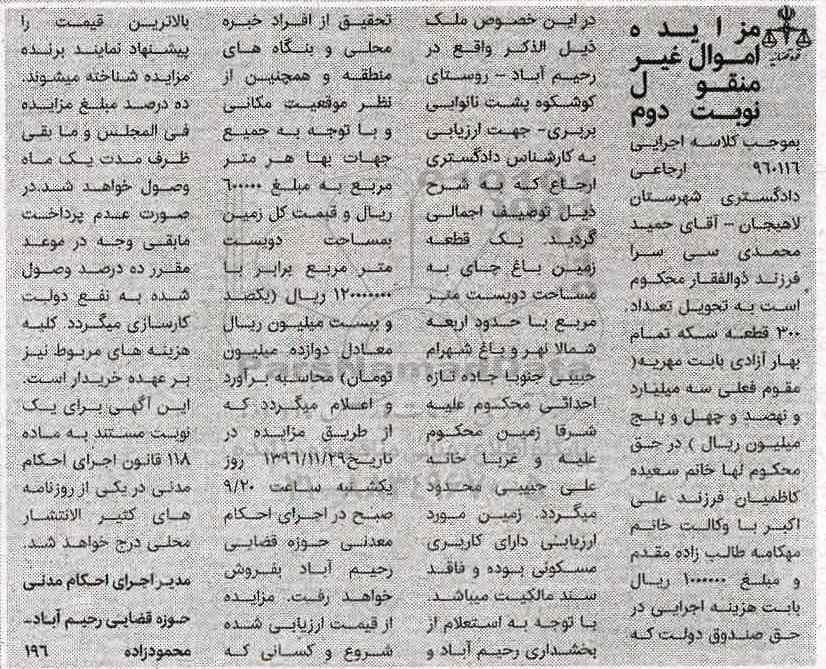 مزایده
اموال غیر
منقول
نوبت دوم
بموجب کلاسه اجرایی
۹۶۰۱۱۶ ارجاعی
دادگستری شهرستان
لاهیجان - آقای حمید
محمدی سی سرا
فرزند ذوالفقار محکوم
است به تحویل تعداد
۳۰۰ قطعه سکه تمام
بهار آزادی بابت مهریه(
مقوم فعلی سه میلیارد
و نهصد و چهل و پنج
میلیون ریال ) در حق
محکوم لها خانم سعیده
کاظمیان فرزند علی
اکبر با وکالت خانم
مهکامه طالب زاده مقدم
و مبلغ ۱۰۰۰۰۰۰ ریال
بابت هزینه اجرایی در
حق صندوق دولت که
در این خصوص ملک
ذیل الذکر واقع در
رحیم آباد - روستای
کوشکوه پشت نانوایی
بربری- جهت ارزیابی
به کارشناس دادگستری
ارجاع که به شرح
ذیل توصیف اجمالی
گردید. یک قطعه
زمین باغ چای به
مساحت دویست متر
مربع با حدود اربعه
شمالا نهر و باغ شهرام
حبیبی جنوبا جاده تازه
احداثی محکوم علیه
شرقا زمین محکوم
علیه و غربا خانه
علی حبیبی محدود
میگردد. زمین مورد
ارزیابی دارای کاربری
مسکونی بوده و فاقد
سند مالکیت میباشد.
با توجه به استعلام از
بخشداری رحیم آباد و
تحقیق از افراد خبره
محلی و بنگاه های
منطقه و همچنین از
نظر موقعیت مکانی
و با توجه به جمیع
جهات بها هر متر
مربع به مبلغ ۶۰۰۰۰۰
ریال و قیمت کل زمین
بمساحت دویست
متر مربع برابر با
۱۲۰۰۰۰۰۰۰ ریال (یکصد
و بیست میلیون ریال
معادل دوازده میلیون
تومان) محاسبه برآورد
و اعلام میگردد که
از طریق مزایده در
تاریخ۱۳۹۶/۱۱/۲۹ روز
یکشنبه ساعت ۹/۲۰
صبح در اجرای احکام
معدنی حوزه قضایی
رحیم آباد بفروش
خواهد رفت. مزایده
از قیمت ارزیابی شده
شروع و کسانی که
بالاترین قیمت را
پیشنهاد نمایند برنده
مزایده شناخته میشوند.
ده درصد مبلغ مزایده
فی المجلس و ما بقی
ظرف مدت یک ماه
وصول خواهد شد.در
صورت عدم پرداخت
مابقی وجه در موعد
مقرر ده درصد وصول
شده به نفع دولت
کارسازی میگردد. کلیه
هزینه های مربوط نیز
بر عهده خریدار است.
این آگهی برای یک
نوبت مستند به ماده
۱۱۸ قانون اجرای احکام
مدنی در یکی از روزنامه
های کثیر الانتشار
محلی درج خواهد شد.
مدیر اجرای احکام مدنی
حوزه قضایی رحیم آباد-
محمودزاده ۱۹۶